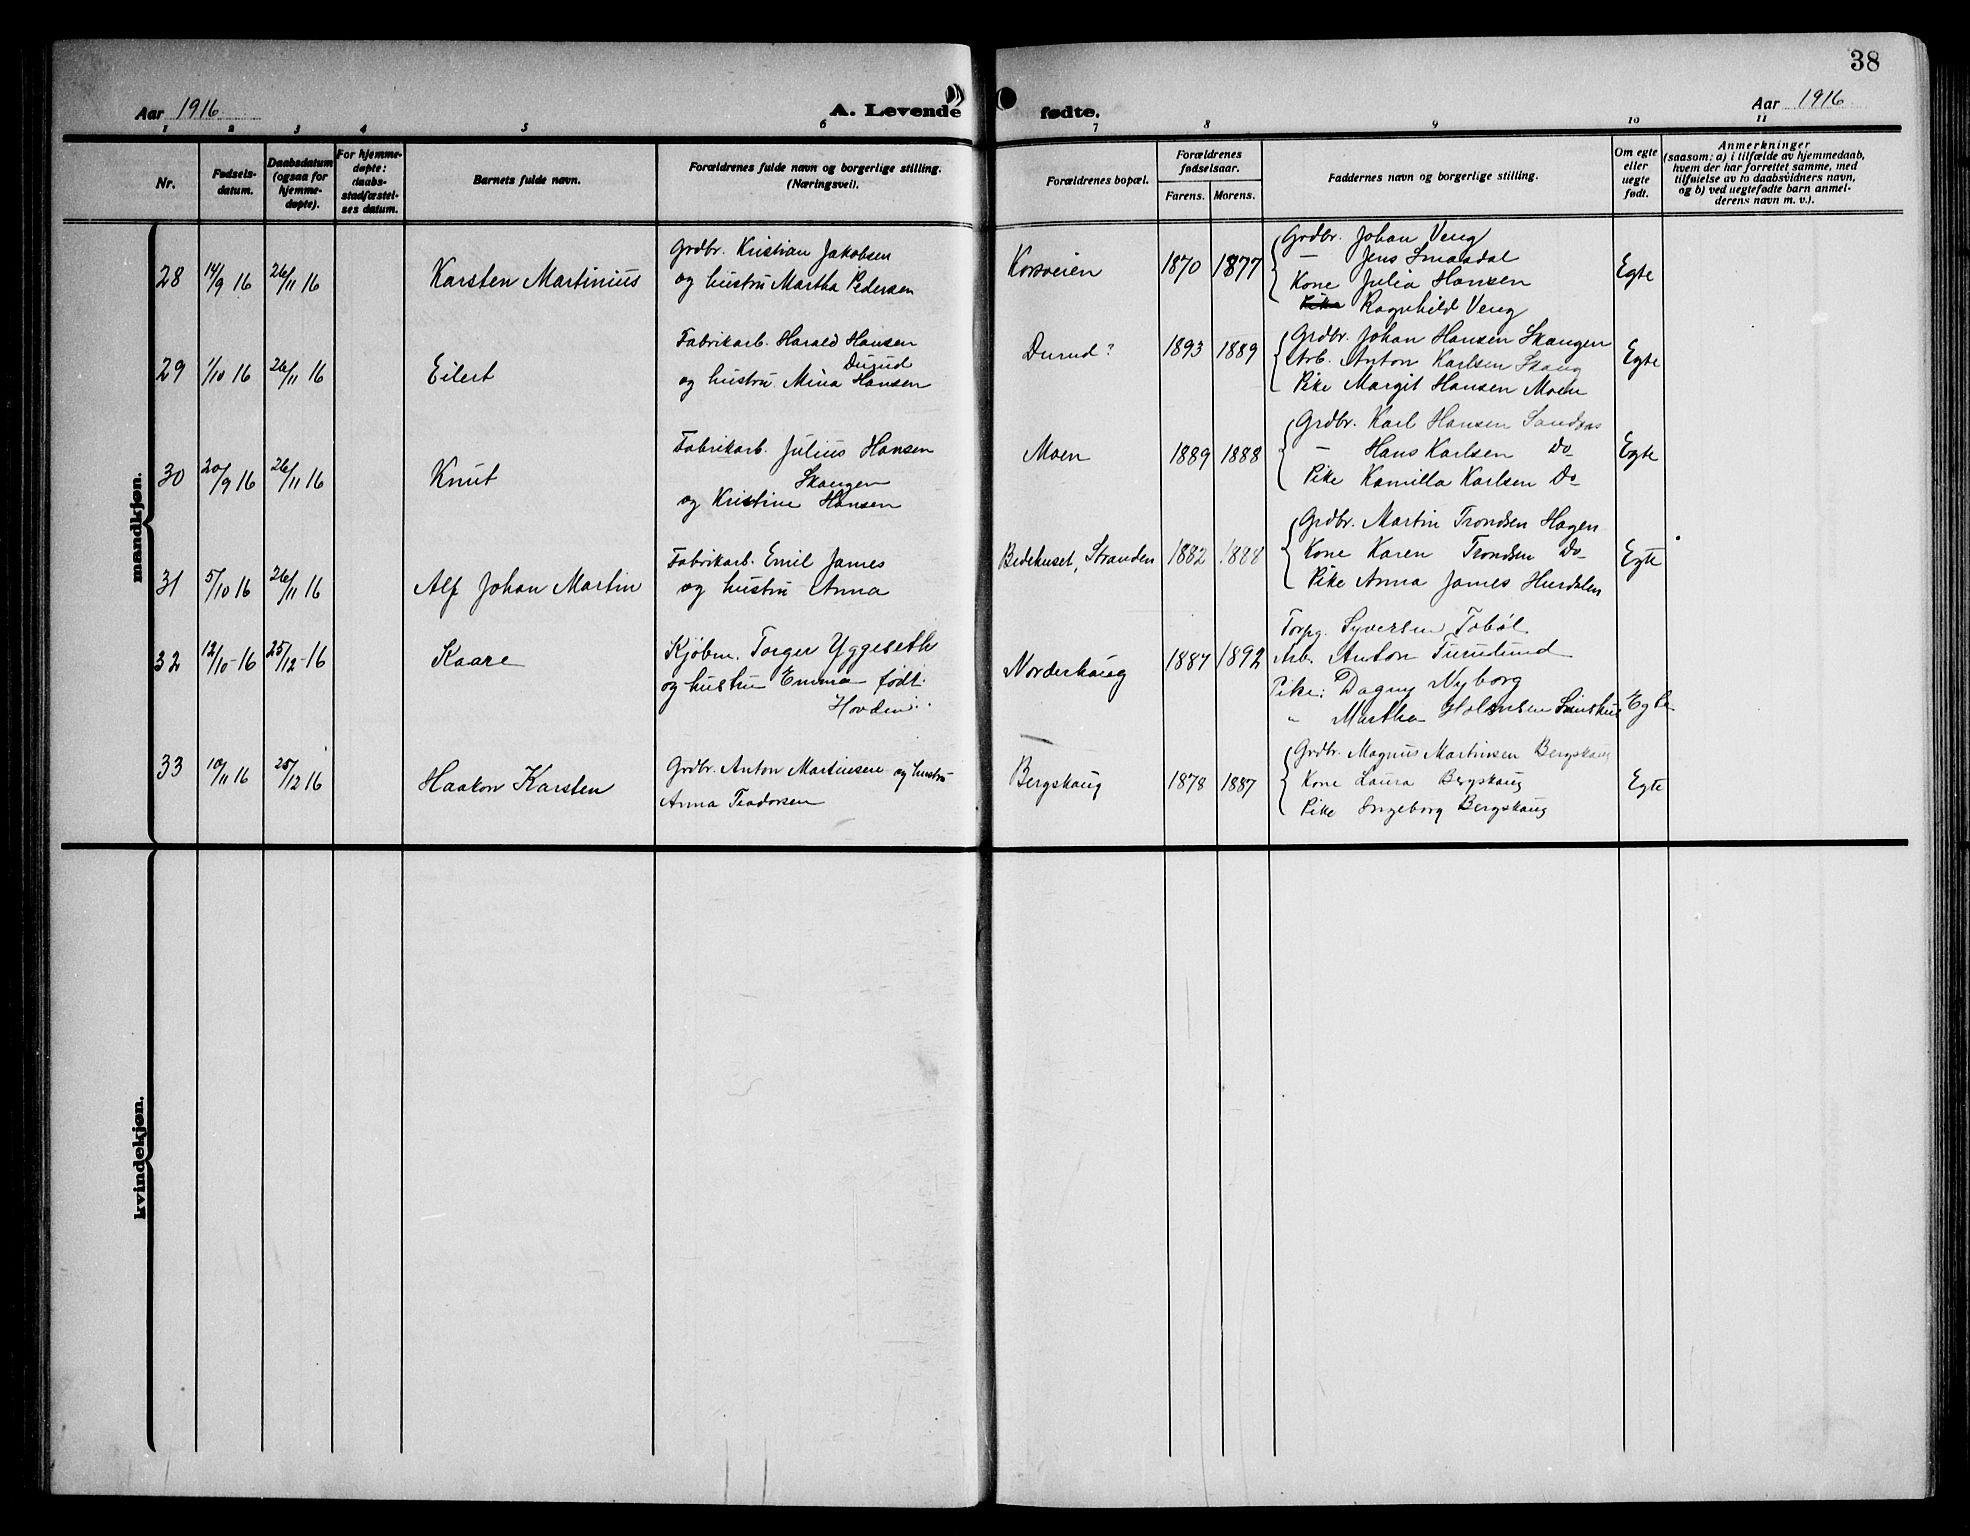 38
Aar 1916
A. Levende
fødte.
Aar 1916
1 2 3 4 5 6 7 8 9 10 11
Nr.
Fødsels-
datum.
Daabsdatum
(ogsaa for
hjemme-
døpte).
For hjemme-
døpte:
daabs-
stadfæstel-
ses datum.
Barnets fulde navn.
Forældrenes fulde navn og borgerlige stilling.
(Næringsvei).
Forældrenes bopæl.
Forældrenes
fødselsaar.
Farens. Morens.
Faddernes navn og borgerlige stilling.
Om egte
eller
uegte
født.
Anmerkninger
(saasom: a) i tilfælde av hjemmedaab,
hvem der har forrettet samme, med
tilføielse av to daabsvidners navn,
og b) ved uegtefødte barn anmel-
derens navn m. v.).
mandkjøn.
28 14/9 16 26/11 16 Karsten Martinius
Grdbr. Kristian Jakobsen
og hustru Martha Pedersen
Korsveien 1870 1877
Grdbr. Johan Veng
— Jens Smaadal
Kone Julia Hansen
Ragnhild Veng
Egte
29 1/10 16 26/11 16 Eilert
Fabrikarb. Harald Hansen
Durud
og hustru Mina Hansen
Durud? 1893 1889
Grdbr. Johan Hansen Skangen
Arb. Anton Karlsen Skaug
Pike Margit Hansen Moen
Egte
30 20/9 16 26/11 16 Knut
Fabrikarb. Julius Hansen
Skangen
og Kristine Hansen
Moen 1889 1888
Grdbr. Karl Hansen Sandaas
— Hans Karlsen Do
Pike Kamilla Karlsen Do
Egte
31 5/10 16 26/11 16 Alf Johan Martin
Fabrikarb. Emil James
og hustru Anna
Bedehuset, Stranden 1882 1888
Grdbr. Martin Trondsen Hagen
Kone Karen Trondsen Do
Pike Anna James Hurdalen
Egte
32 12/10-16 25/12-16 Kaare
Kjøbm. Torger Yggeseth
og hustru Emma født
Hovden
Norderhaug 1887 1892
Torpg. Syversen Tobøl
Arb. Anton Turudlund
Pike: Dagny Nyborg
" Martha
Egte
33 10/11 16 25/12 16 Haakon Karsten
Grdbr. Anton Martinsen og hustru
Anna Teodorsen
Bergskaug 1878 1887
Grdbr. Magnus Martinsen Bergskaug
Kone Laura Bergskaug
Pike Ingeborg Bergskaug
Egte
kvindekjøn.